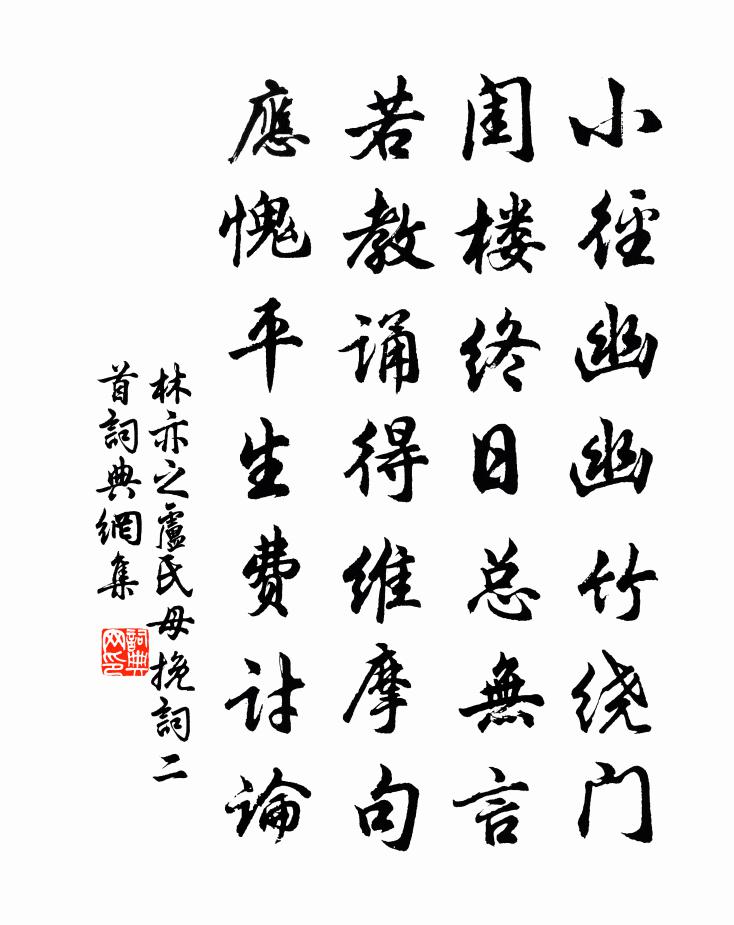 小徑幽幽竹绕门
闺楼终日总無言
若教誦得维摩句
應愧平生费討論
林亦之盧氏母挽詞二
首詞典網集
詞典网印